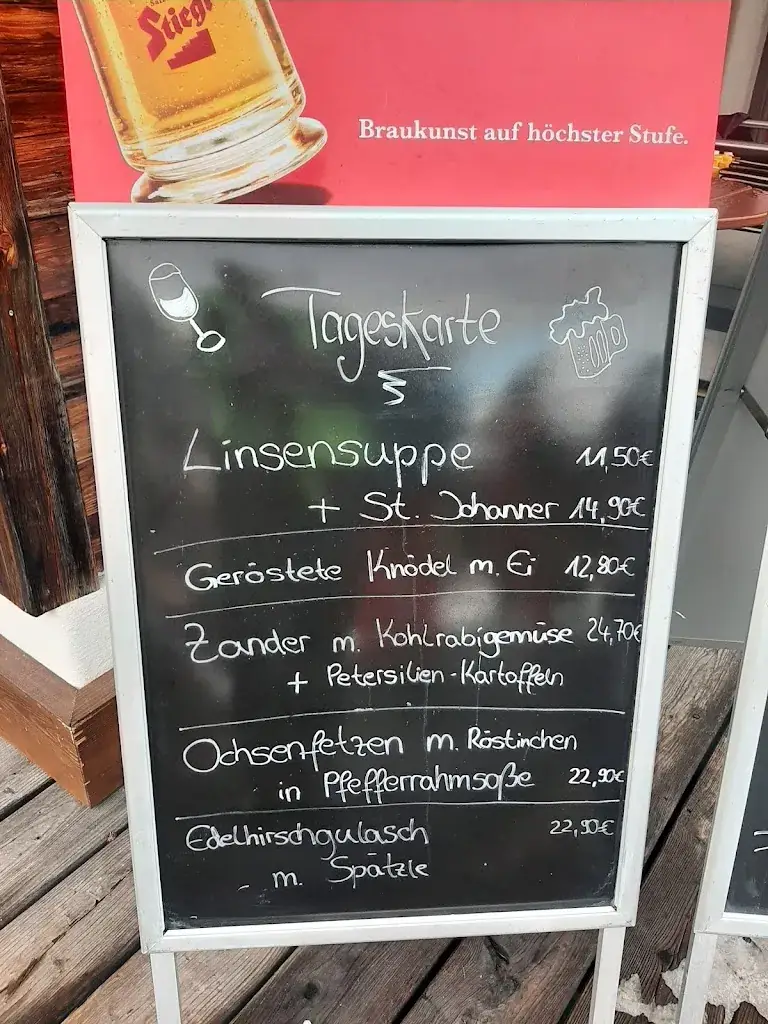 Stiegl
Braukunst auf höchster Stufe.
Tageskarte
Linsensuppe 11,50€
+ St. Johanner 14,90€
Geröstete Knödel m. Ei 12,80€
Zander m. Kohlrabigemüse 24,70€
+ Petersilien-Kartoffeln
Ochsenfetzen m. Röstinchen
in Pfefferrahmsoße 22,90€
Edelhirschgulasch 22,90€
m. Spätzle